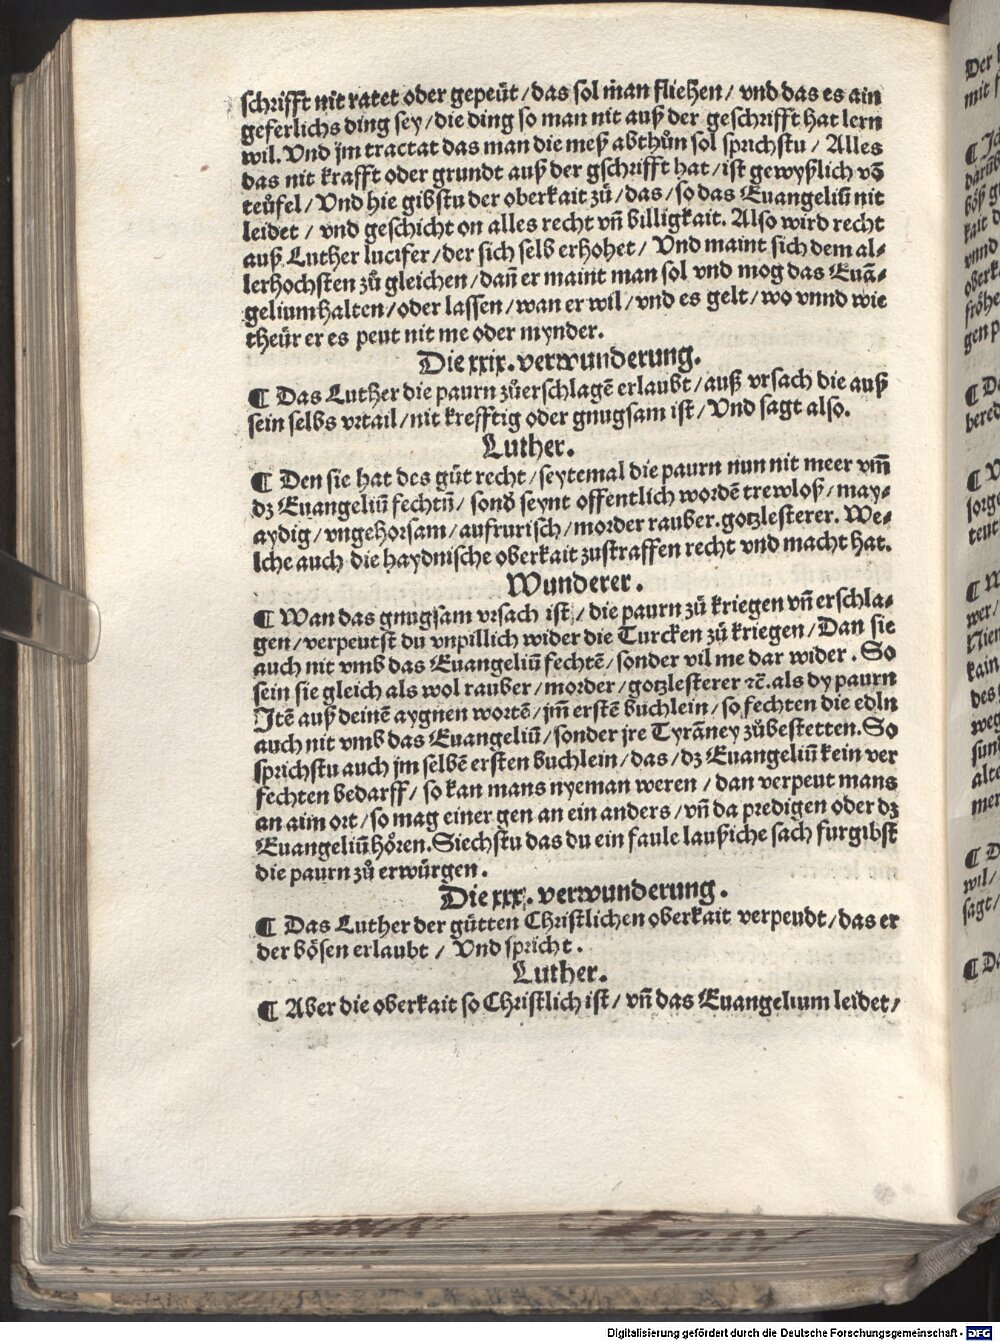 schrifft nit ratet oder gepeüt / das sol man fliehen / vnd das es ain
geferlichs ding sey / die ding so man nit auß der geschrifft hat lern
wil. Vnd jm tractat das man die meß abthůn sol sprichstu / Alles
das nit krafft oder grundt auß der gschrifft hat / ist gewyßlich vō
teüfel / Vnd hie gibstu der oberkait zů / das / so das Euangeliū nit
leidet / vnd geschicht on alles recht vn̄ billigkait. Also wird recht
auß Luther lucifer / der sich selb erhohet / Vnd maint sich dem al⸗
lerhochsten zů gleichen / dan̄ er maint man sol vnd mog das Euā⸗
gelium halten / oder lassen / wan er wil / vnd es gelt / wo vnnd wie
theür er es peut nit me oder mynder.
Die xxix. verwunderung.
¶ Das Luther die paurn zůerschlagē erlaubt / auß vrsach die auß
sein selbs vrtail / nit krefftig oder gnugsam ist / Vnd sagt also.
Luther.
¶ Den sie hat des gůt recht / seytemal die paurn nun nit meer vm̄
dz Euangeliū fechtn̄ / sond̄ seynt offentlich wordē trewloß / may⸗
aydig / vngehorsam / aufrurisch / morder rauber. gotzlesterer. We⸗
lche auch die haydnische oberkait zustraffen recht vnd macht hat.
Wunderer.
¶ Wan das gnugsam vrsach ist / die paurn zů kriegen vn̄ erschla⸗
gen / verpeutst du vnpillich wider die Turcken zů kriegen / Dan sie
auch nit vmb das Euangeliū fechtē / sonder vil me dar wider. So
sein sie gleich als wol rauber / morder / gotzlesterer ꝛc̄. als dy paurn
Itē auß deinē aygnen wortē / jm̄ erstē buchlein / so fechten die edln
auch nit vmb das Euangeliū / sonder jre Tyrāney zůbestetten. So
sprichstu auch jm selbē ersten buchlein / das / dz Euangeliū kein ver
fechten bedarff / so kan mans nyeman weren / dan verpeut mans
an aim ort / so mag einer gen an ein anders / vn̄ da predigen oder dz
Euangeliū hören. Siechstu das du ein faule laußiche sach furgibst
die paurn zů erwürgen.
Die xxx. verwunderung.
¶ Das Luther der gůtten Christlichen oberkait verpeudt / das er
der bösen erlaubt / Vnd spricht.
Luther.
¶ Aber die oberkait so Christlich ist / vn̄ das Euangelium leidet /
Digitalisierung gefördert durch die Deutsche Forschungsgemeinschaft - DFG